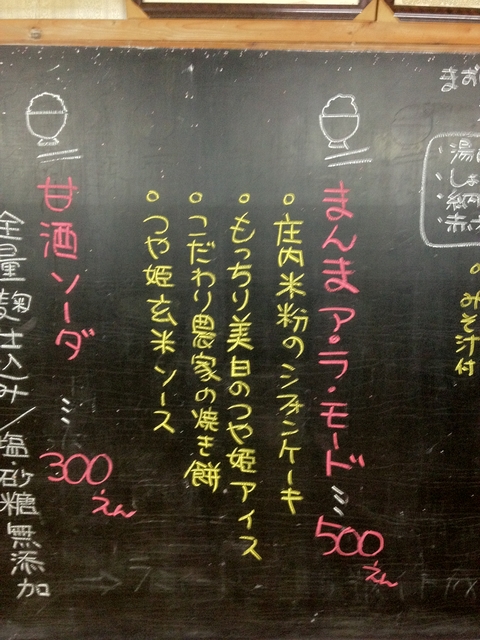 まず
湯
しょ
納
赤
みそ汁付
まんまア・ラ・モード…500えん
。庄内米粉のシフォンケーキ
。もっちり美白のつや姫アイス
。こだわり農家の焼き餅
。つや姫玄米ソース
甘酒ソーダ…300えん
全量麹仕込み/塩・砂糖無添加